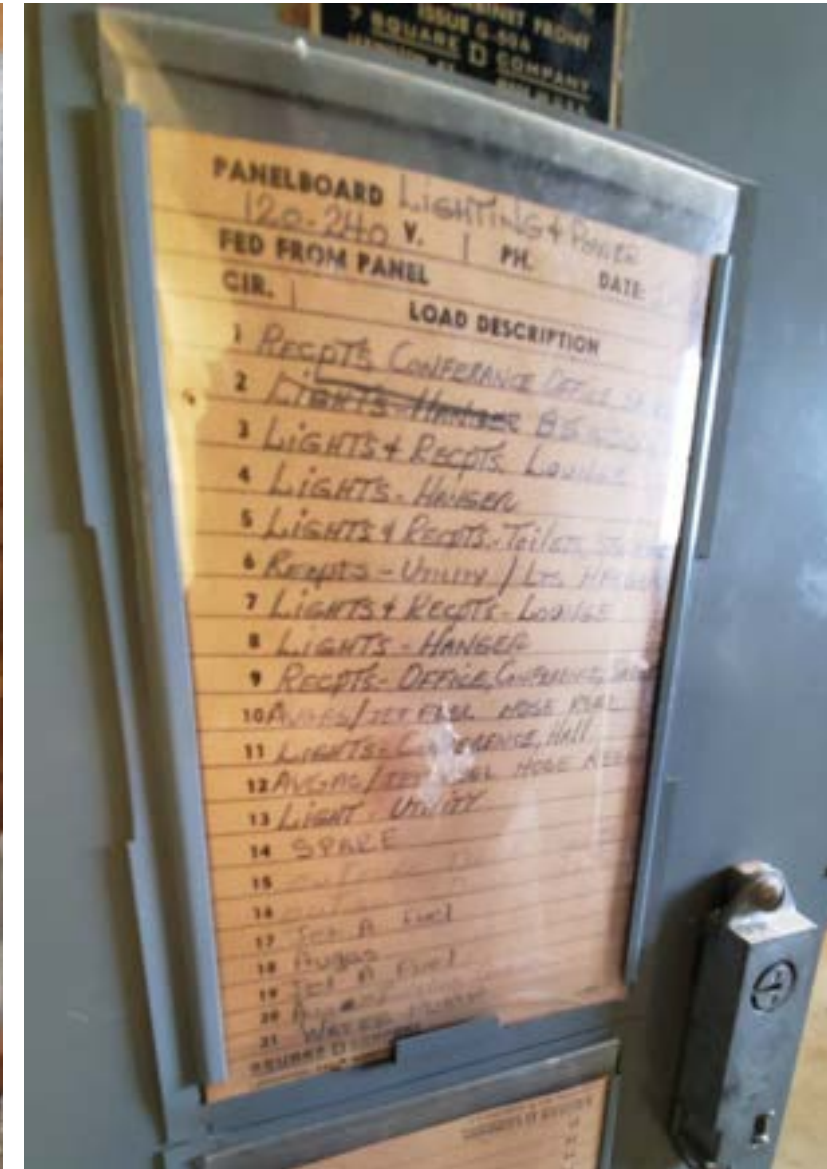 CABINET FRONT
ISSUE G-
SQUARE D COMPANY
PANELBOARD LIGHTING & POWER
120-240 V. 1 PH. DATE:
FED FROM PANEL
CIR. LOAD DESCRIPTION
1 RECPTS CONFERANCE OFFICE
2 LIGHTS-HANGER
3 LIGHTS & RECPTS LOUNGE
4 LIGHTS-HANGER
5 LIGHTS & RECPTS-TOILETS
6 RECPTS-UTILITY / LTS HANGER
7 LIGHTS & RECPTS-LOUNGE
8 LIGHTS-HANGER
9 RECPTS-OFFICE, CONFERENCE,
10 AVGAS/JET FUEL HOSE REEL
11 LIGHTS-CONFERENCE, HALL
12 AVGAS/JET FUEL HOSE REEL
13 LIGHT-UTILITY
14 SPARE
15
16
17 JET A FUEL
18 AVGAS
19 JET A FUEL
20
21 WATER
SQUARE D COMPANY